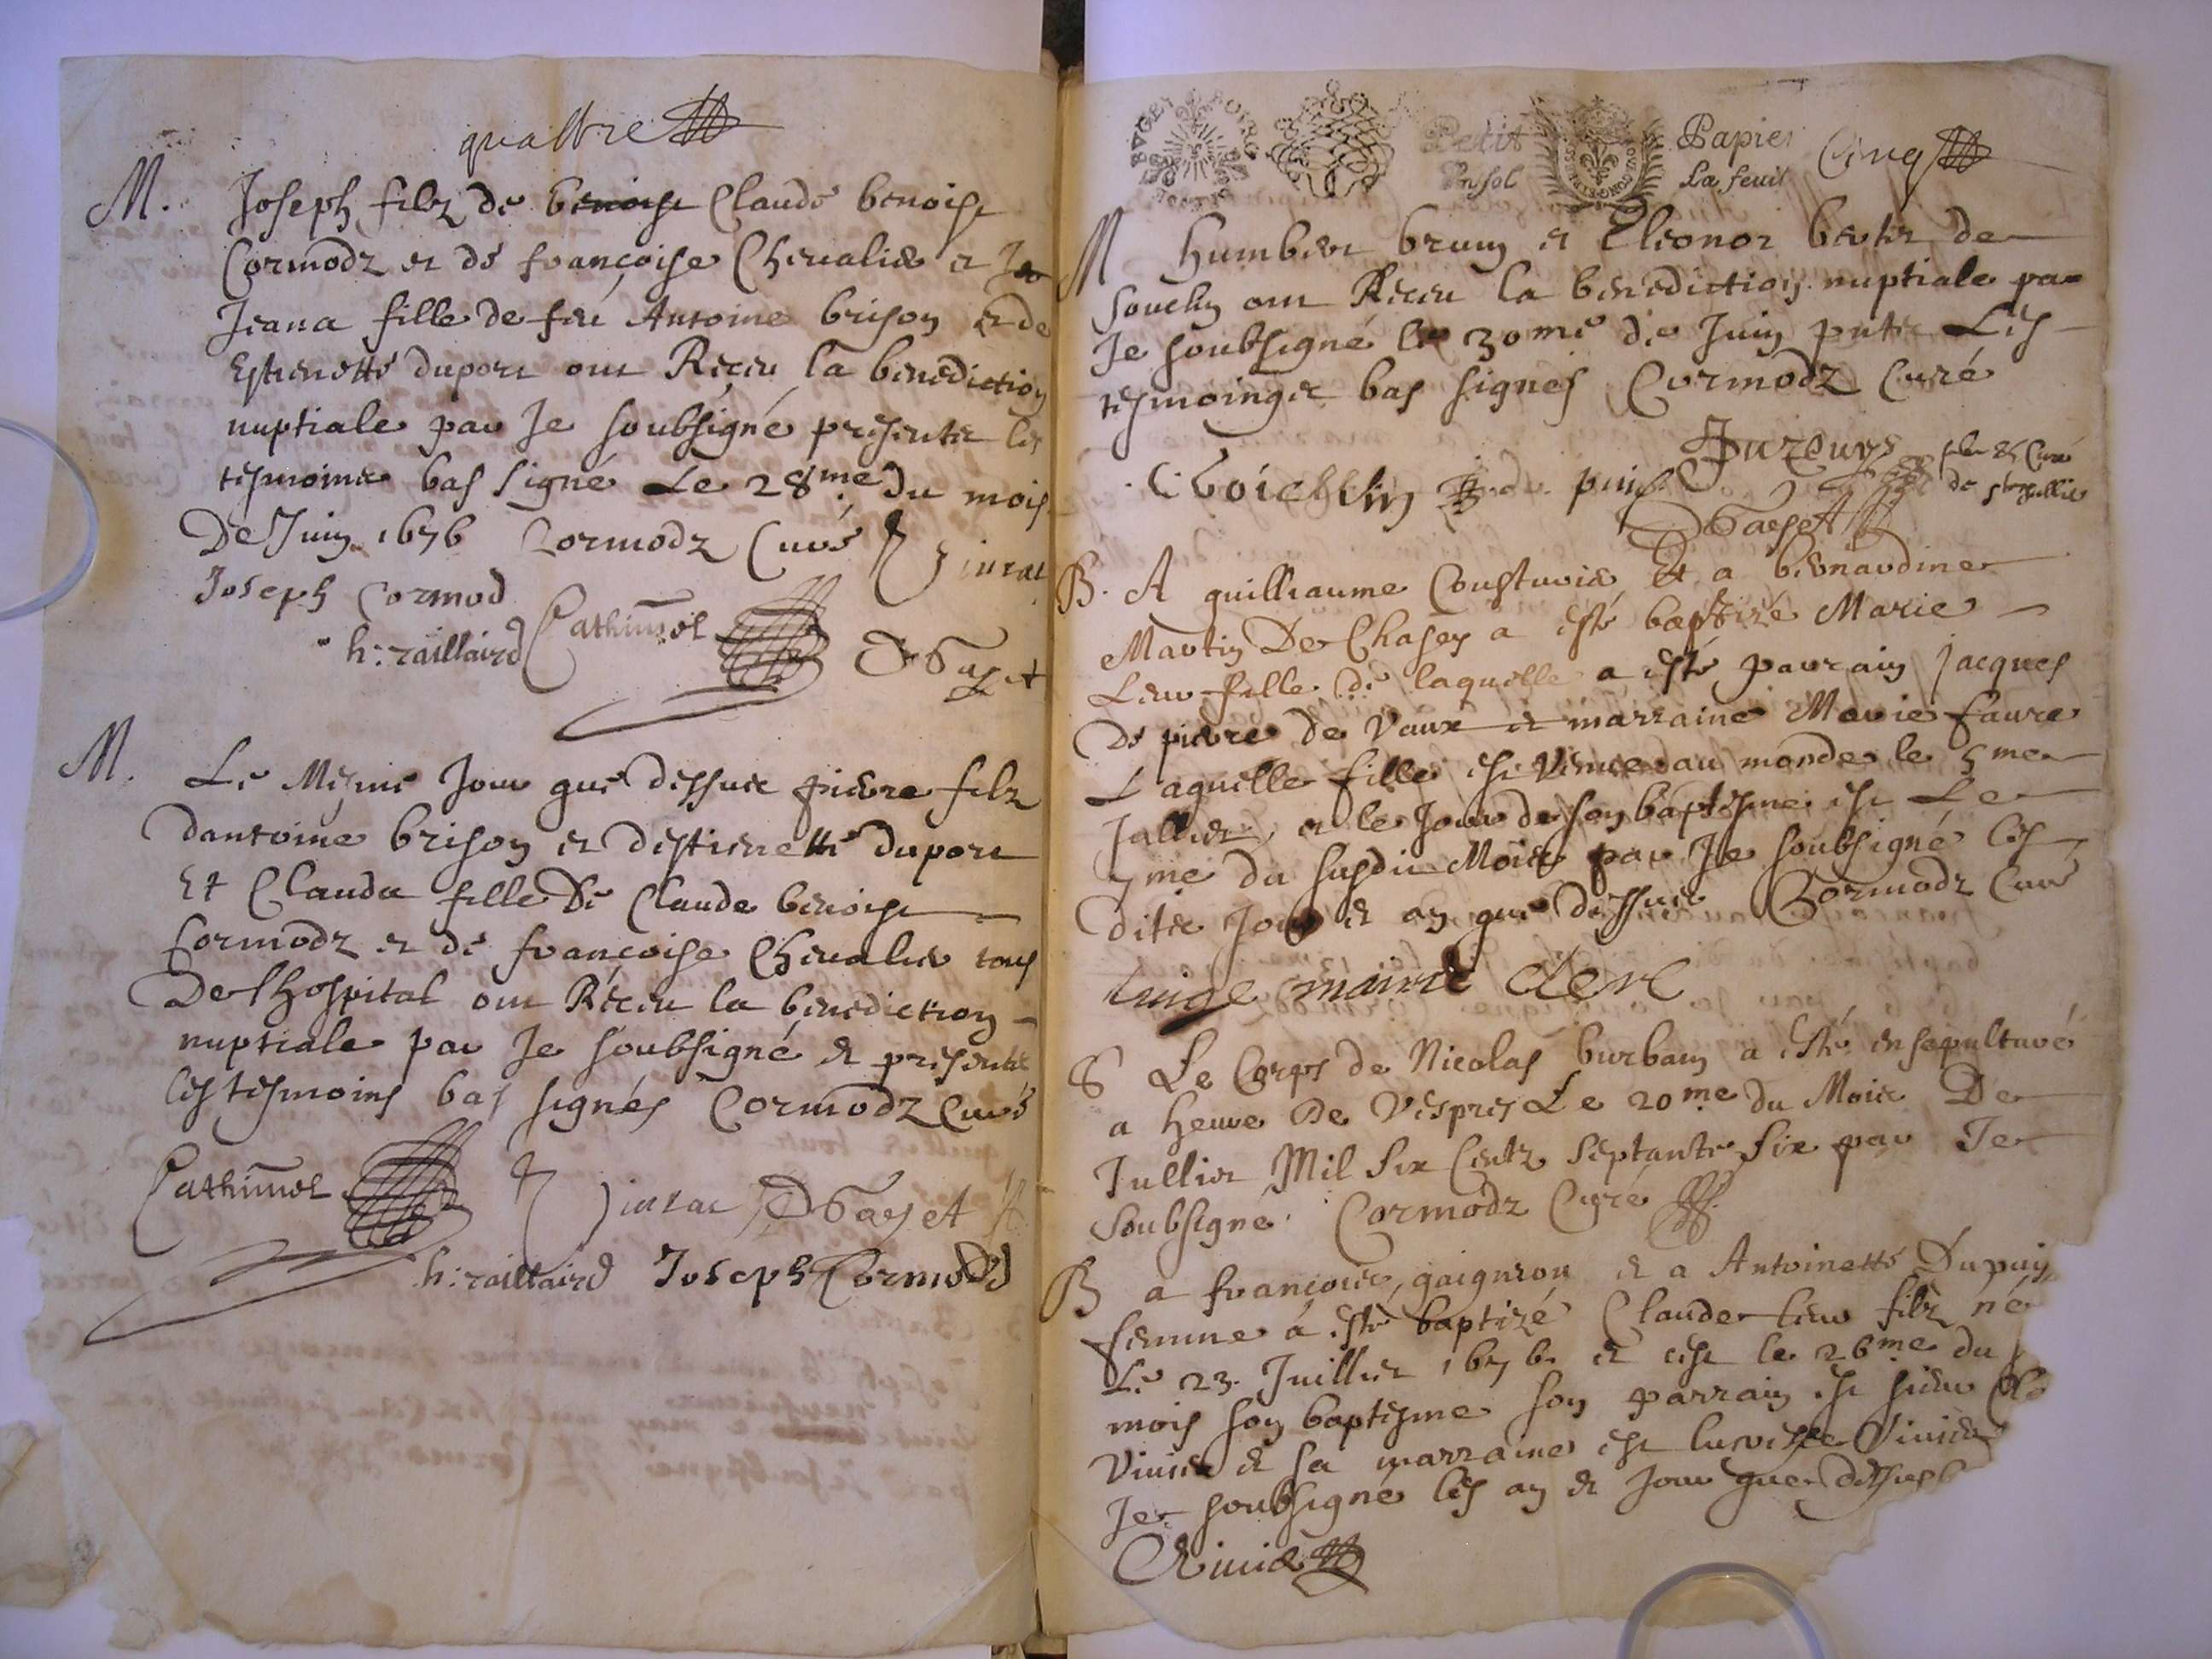 quattre
M. Joseph filz de benoist Claude benoist
Cormodz et de francoise Chevalier et Je
Jeana fille de feu Antoine brison et de
Estienette duport ont Receu la benediction
nuptiale par Je soubsigné presente les
tesmoins bas signé Le 28me du mois
De Juin 1676 Cormodz Curé
Joseph Cormod
h: raillaird Cathimel
M. Le Mesme Jour que dessus pierre filz
dantoine brison et destienette duport
Et Clauda fille De Claude benoist
Cormodz et de francoise Chevalier tous
De lhospital ont Receu la benediction
nuptiale par Je soubsigné et presente
les tesmoins bas signés Cormodz Curé
Cathimel
h: raillaird Joseph Cormodd
BUGEY BOURG
Petit Papier
Un sol La feuil
Cinq
M Humbert brun et Eleonor de
ont Receu la benediction nuptiale par
Je soubsigné le 30me de Juin pnte Les
tesmoings bas signés Cormodz Curé
Curé
de
B. A guilliaume Cousturier Et a bernardine
Martin De Chasey a esté baptizé Marie
Leur fille de laquelle a esté parrain Jacques
De pierre de Vaux et marraine Marie faure
Laquelle fille est Venue au monde le 5me
Jullier, et le Jour de son baptesme est Le
7me du susdit Mois par Je soubsigné les
dits Jour et an que dessus Cormodz Curé
mairie clerc
S Le Corps de Nicolas burbain a esté ensepulturé
a heure De Vespres Le 20me du Mois De
Jullier Mil Six Centz Septante Six par Je
Soubsigné Cormodz Curé
B a francois gaigneron et a Antoinette Dupuy
femme a esté baptizé Claude leur filz né
Le 23. Juillier 1676 et est le 26me du
mois son baptesme son parrain est sieur
Vivier et sa marraine est Vivier
Je soubsigné les an et Jour que dessus